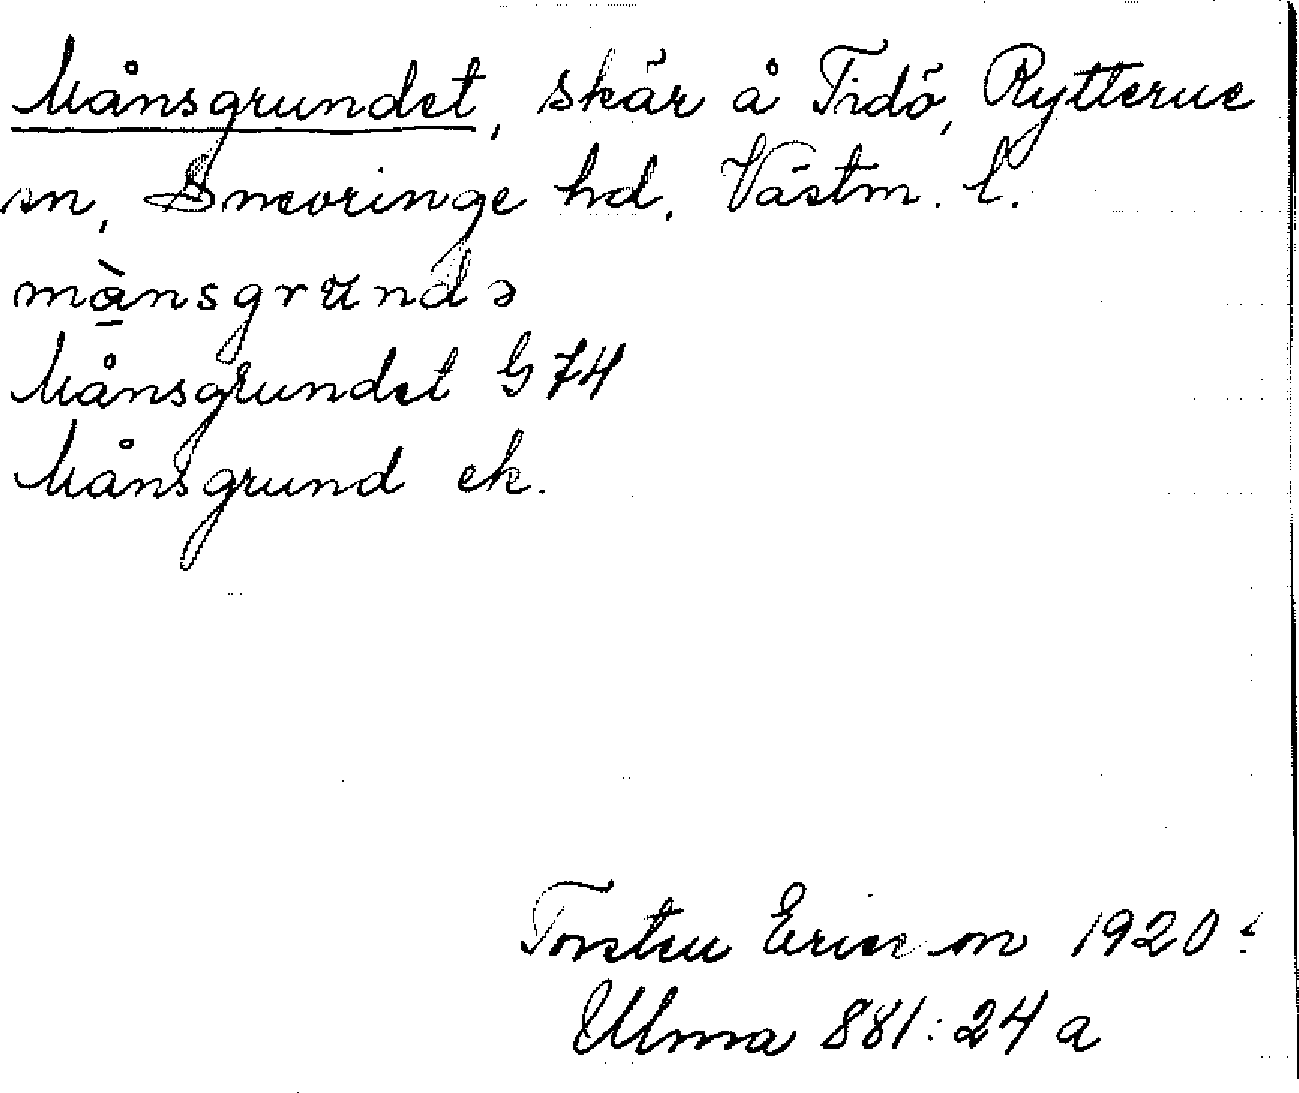 Månsgrundet, skär å Tidö, Rytterne
sn, Snevringe hd, Västm. l.
mànsgrundə
Månsgrundet G 74
Månsgrund ek.
Torsten Ericson 1920
Ulma 881:24 a